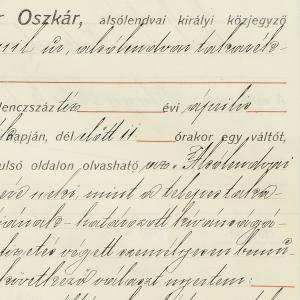 r Oszkár, alsólendvai királyi közjegyző
úr, alsólendvai takarék-
lenczszáz tíz évi április
napján, dél előtt 11 órakor egy váltót,
ulsó oldalon olvasható az Alsólendvai
neki, mint a telepes taka-
határozott kívánsága-
végett személyesen
következő választ nyertem: